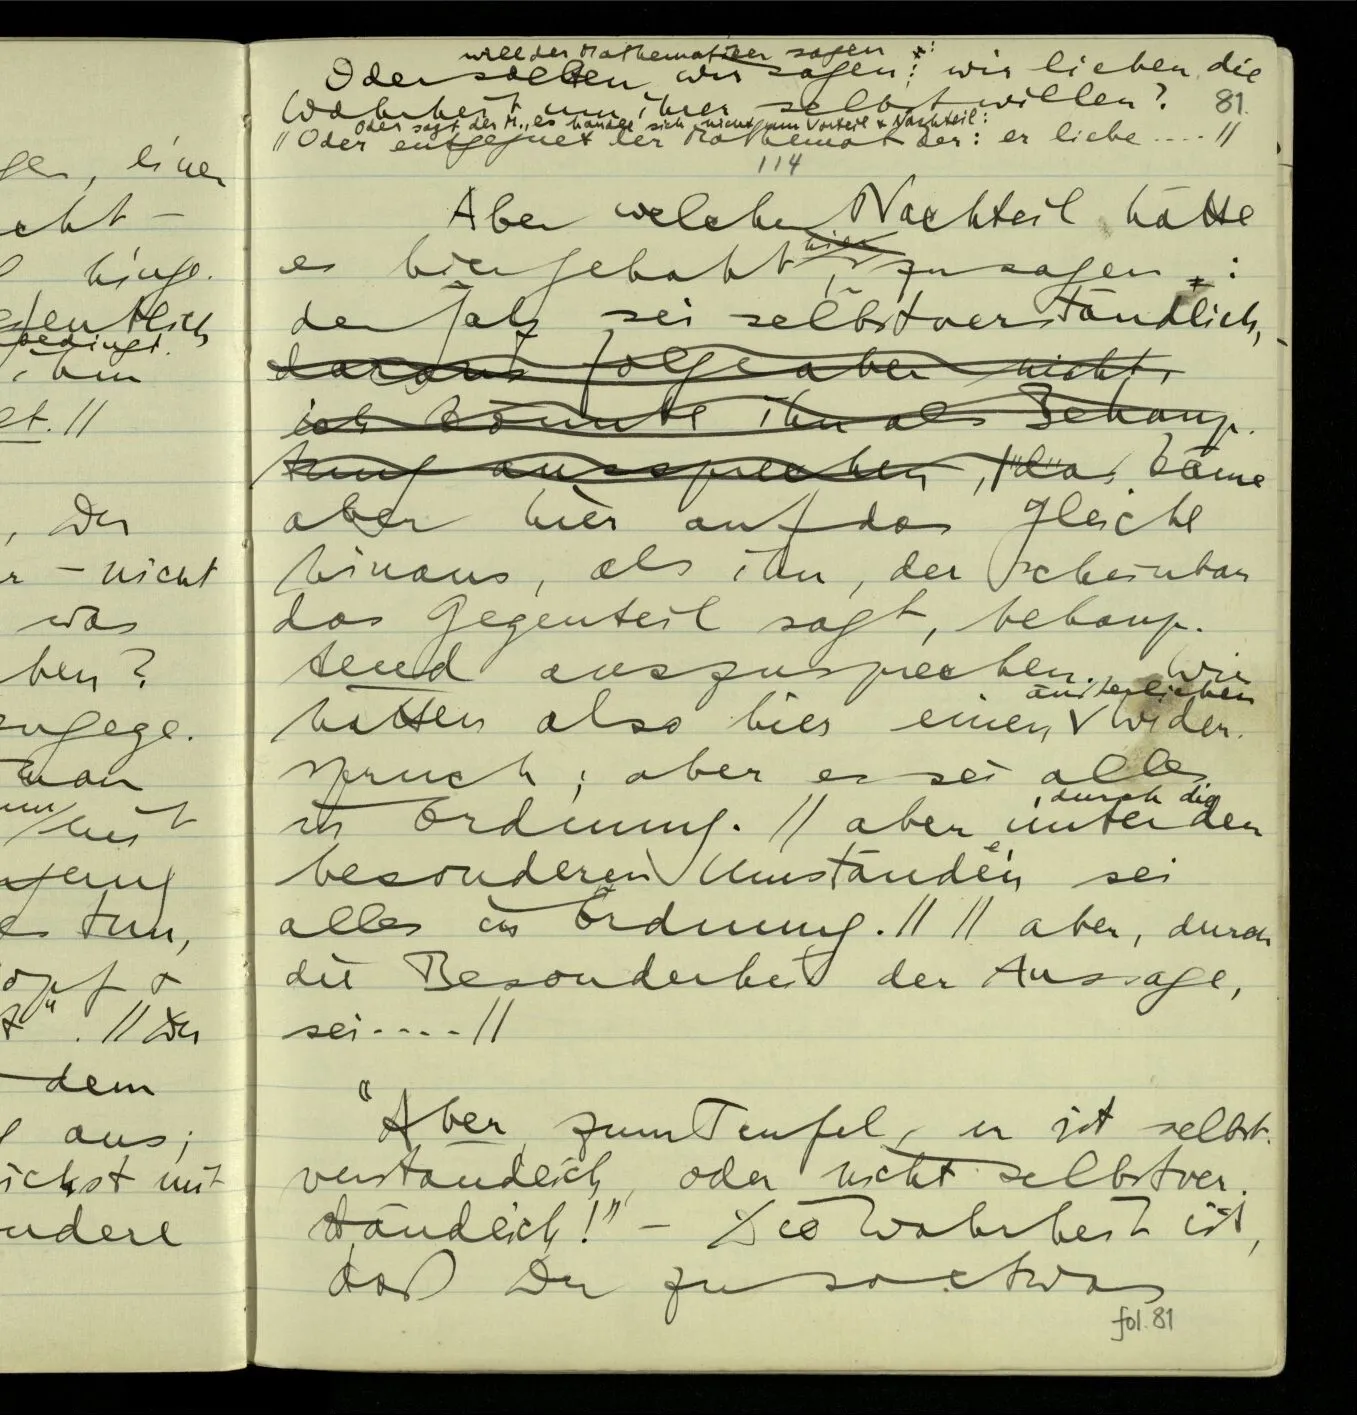 will der Mathematiker sagen
Oder sollen wir sagen: wir lieben die
Wahrheit um ihrer selbst willen?
81
Oder sagt der M., es handle sich nicht um Vorteil & Nachteil:
// Oder entgegnet der Mathematiker: er liebe .... //
114
Aber welchen Nachteil hätte
hier
es hier gehabt, zu sagen:
der Satz sei selbstverständlich,
daraus folge aber nicht,
ich könnte ihn als Behaup-
tung aussprechen, "das käme
aber hier auf das gleiche
hinaus, als ihn, der scheinbar
das Gegenteil sagt, behaup-
tend auszusprechen. Wir
äußerlichen
hätten also hier einen Wider-
spruch; aber es sei alles
durch die
in Ordnung. // aber unter den
besonderen Umständen sei
alles in Ordnung. // // aber, durch
die Besonderheit der Aussage,
sei .... //
"Aber zum Teufel, er ist selbst-
verständlich, oder nicht selbstver-
ständlich!" – Die Wahrheit ist,
daß Du zu so etwas
fol. 81
gen, einen
hinge.
bedingt.
ihm
et. //
, Der
r – nicht
was
ben?
engege-
man
mit
es tun,
". // Der
dem
aus;
mit
ndere